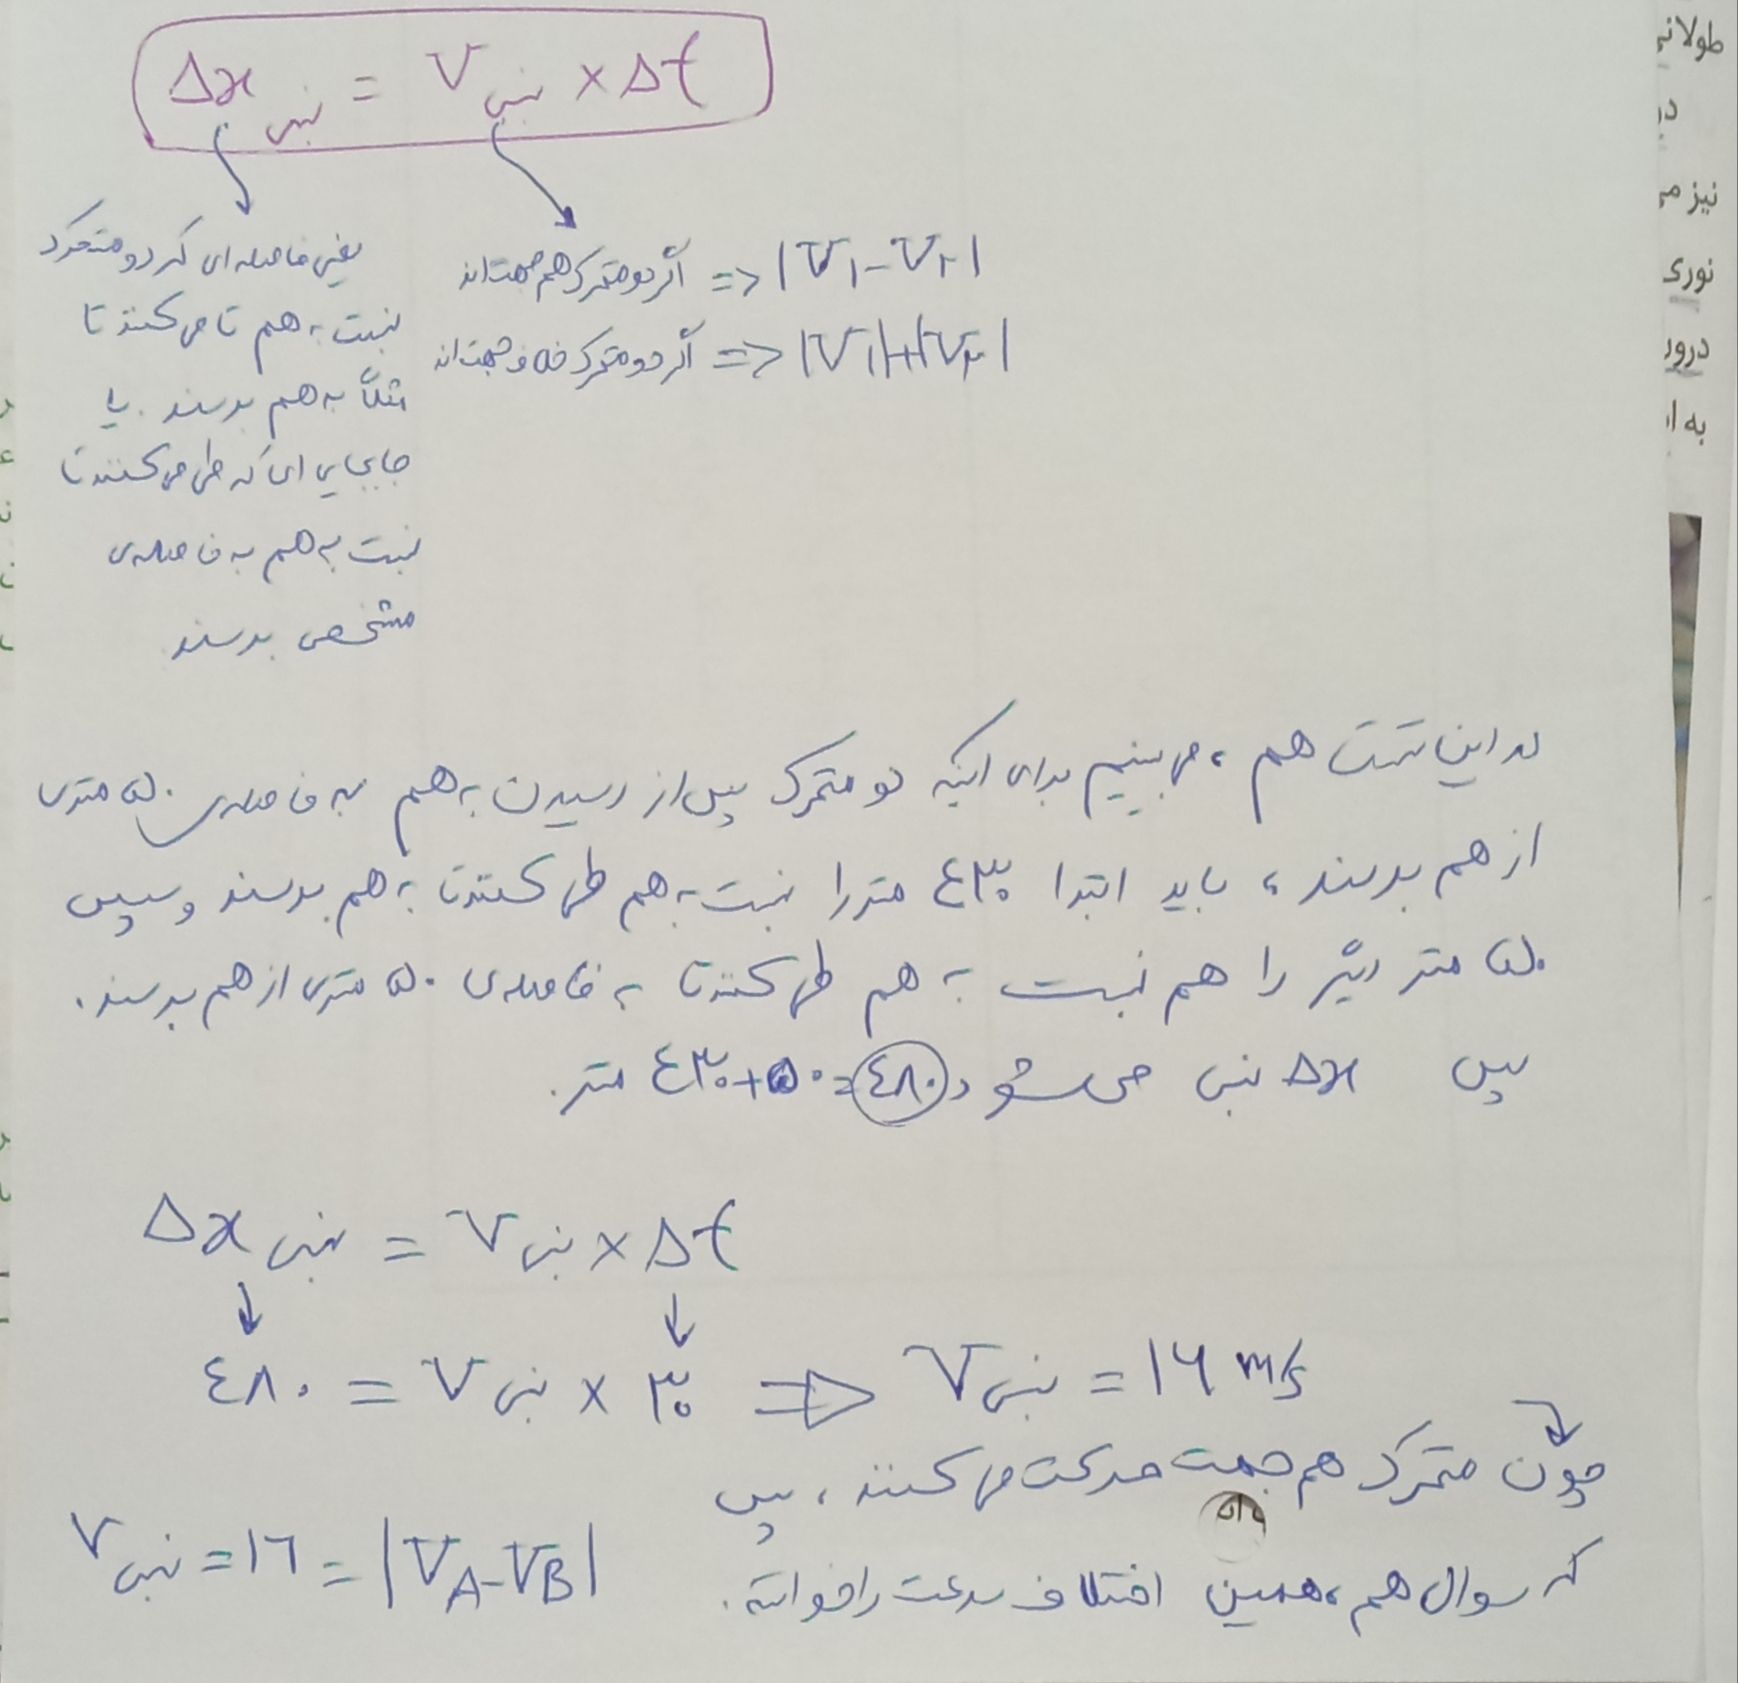 Δx نسبی = V نسبی × Δt
یعنی فاصله‌ای که دو متحرک
نسبت به هم تا می‌کنند تا
مثلاً به هم برسند. یا
جابجایی ای که طی می‌کنند تا
نسبت به هم به فاصله‌ی
مشخصی برسند
اگر دو متحرک هم جهت‌اند => |V۱-V۲|
اگر دو متحرک خلاف جهت‌اند => |V۱|+|V۲|
در این تست هم، می‌بینیم برای اینکه دو متحرک پس از رسیدن به هم به فاصله‌ی ۵۰ متری
از هم برسند، باید ابتدا ۴۳۰ متر را نسبت به هم طی کنند تا به هم برسند و سپس
۵۰ متر دیگر را هم نسبت به هم طی کنند تا به فاصله‌ی ۵۰ متری از هم برسند.
پس Δx نسبی می‌شود ۴۳۰+۵۰=۴۸۰ متر.
Δx نسبی = V نسبی × Δt
۴۸۰ = V نسبی × ۳۰ => V نسبی = ۱۶ m/s
چون متحرک هم جهت حرکت می‌کنند، پس
های
V نسبی = ۱۶ = |VA-VB|
که سوال هم، همین اختلاف سرعت را خواسته.
طولانی
در
نیز
نوری
درور
به